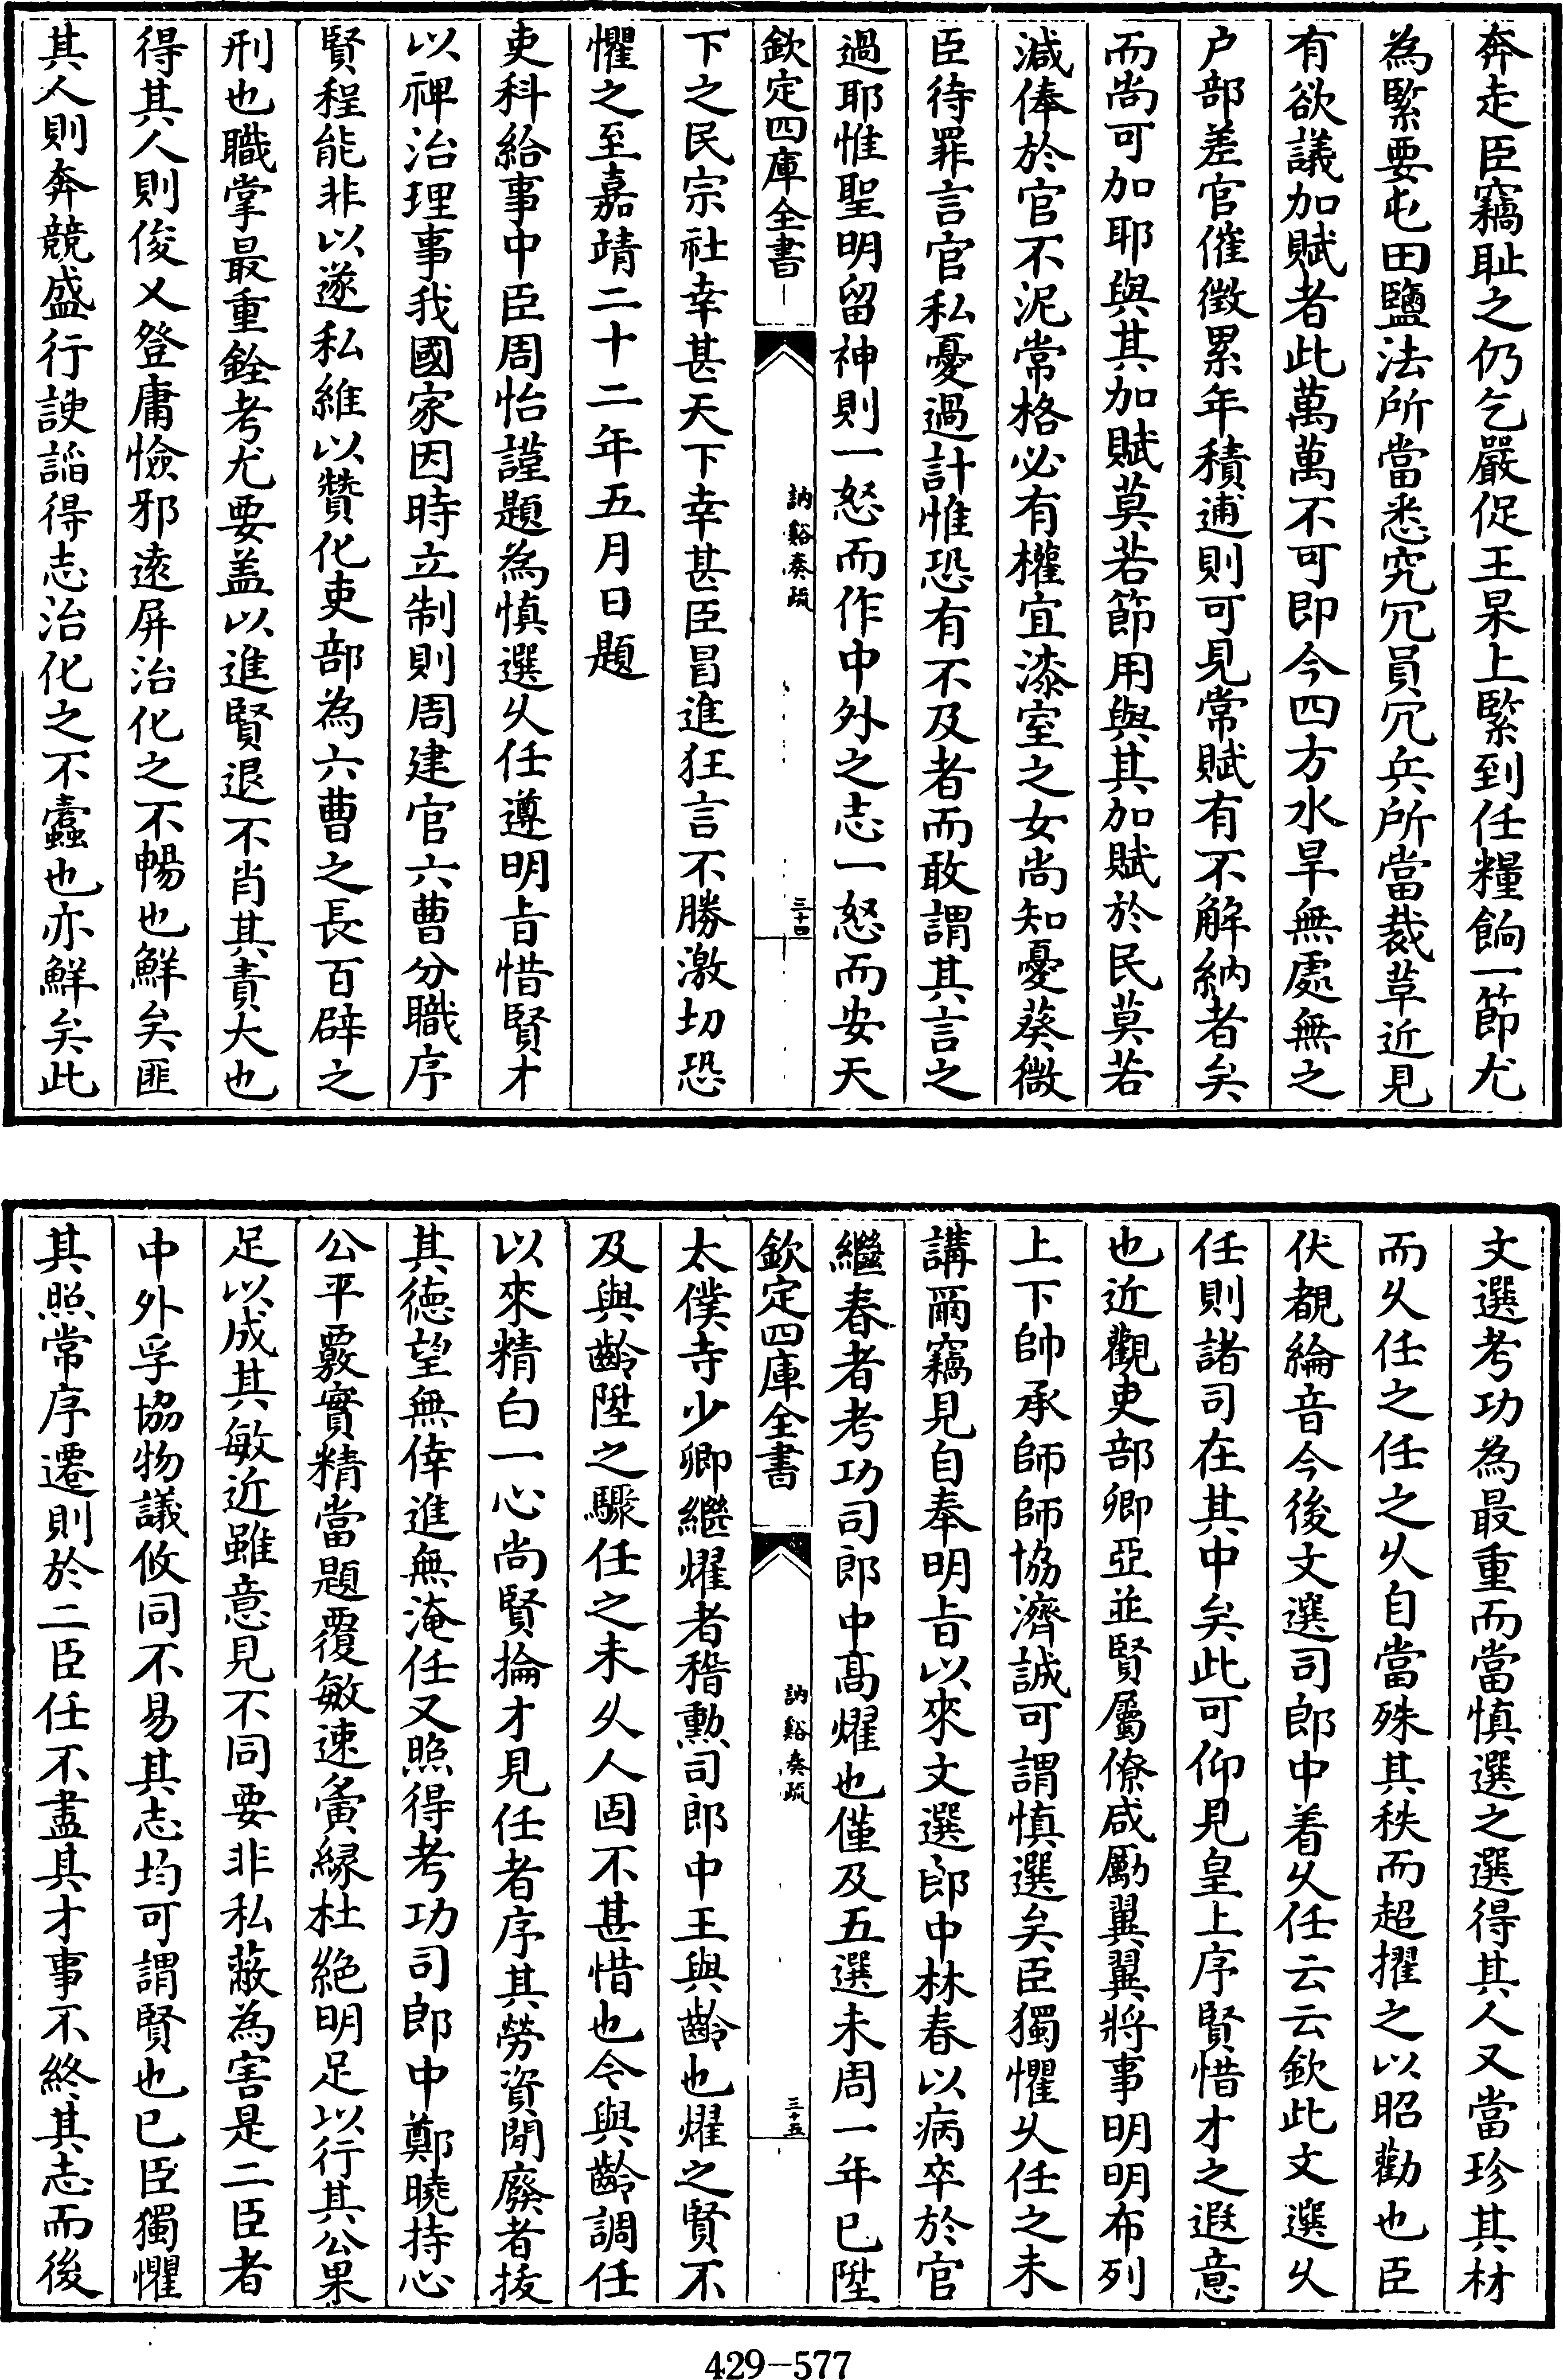 奔走臣竊耻之仍乞嚴促王杲上緊到任糧餉一節尤
為緊要屯田鹽法所當悉究冗員冗兵所當裁革近見
有欲議加賦者此萬萬不可即今四方水旱無處無之
户部差官催徵累年積逋則可見常賦有不解納者矣
而尚可加耶與其加賦莫若節用與其加賦於民莫若
減俸於官不泥常格必有權宜漆室之女尚知憂葵微
臣待罪言官私憂過計惟恐有不及者而敢謂其言之
過耶惟聖明留神則一怒而作中外之志一怒而安天
欽定四庫全書
訥谿奏疏
三十四
下之民宗社幸甚天下幸甚臣昌進狂言不勝激切恐
懼之至嘉靖二十二年五月日題
吏科給事中臣周怡謹題為慎選乆任遵明㫖惜賢才
以禆治理事我國家因時立制則周建官六曹分職序
賢程能非以遂私維以贊化吏部為六曹之長百辟之
刑也職掌最重銓考尤要盖以進賢退不肖其責大也
得其人則俊乂登庸憸邪逺屏治化之不暢也鮮矣匪
其人則奔競盛行諛謟得志治化之不蠹也亦鮮矣此
文選考功為最重而當慎選之選得其人又當珍其材
而乆任之任之乆自當殊其秩而超擢之以昭勸也臣
伏覩綸音今後文選司郎中着乆任云云欽此文選乆
任則諸司在其中矣此可仰見皇上序賢惜才之遐意
也近觀吏部卿亞並賢屬僚咸勵翼翼將事明明布列
上下帥承師師協濟誠可謂慎選矣臣獨懼乆任之未
講爾竊見自奉明㫖以來文選郎中林春以病卒於官
繼春者考功司郎中髙燿也僅及五選未周一年已陞
欽定四庫全書
訥谿奏疏
三十五
太僕寺少卿繼燿者稽勲司郎中王與齡也燿之賢不
及與齡陞之驟任之未乆人固不甚惜也今與齡調任
以來精白一心尚賢掄才見任者序其勞資閒廢者拔
其德望無倖進無淹任又照得考功司郎中鄭曉持心
公平覈實精當題覆敏速夤緣杜絶明足以行其公果
足以成其敏近雖意見不同要非私蔽為害是二臣者
中外孚協物議攸同不易其志均可謂賢也已臣獨懼
其照常序遷則於二臣任不盡其才事不終其志而後
429-577